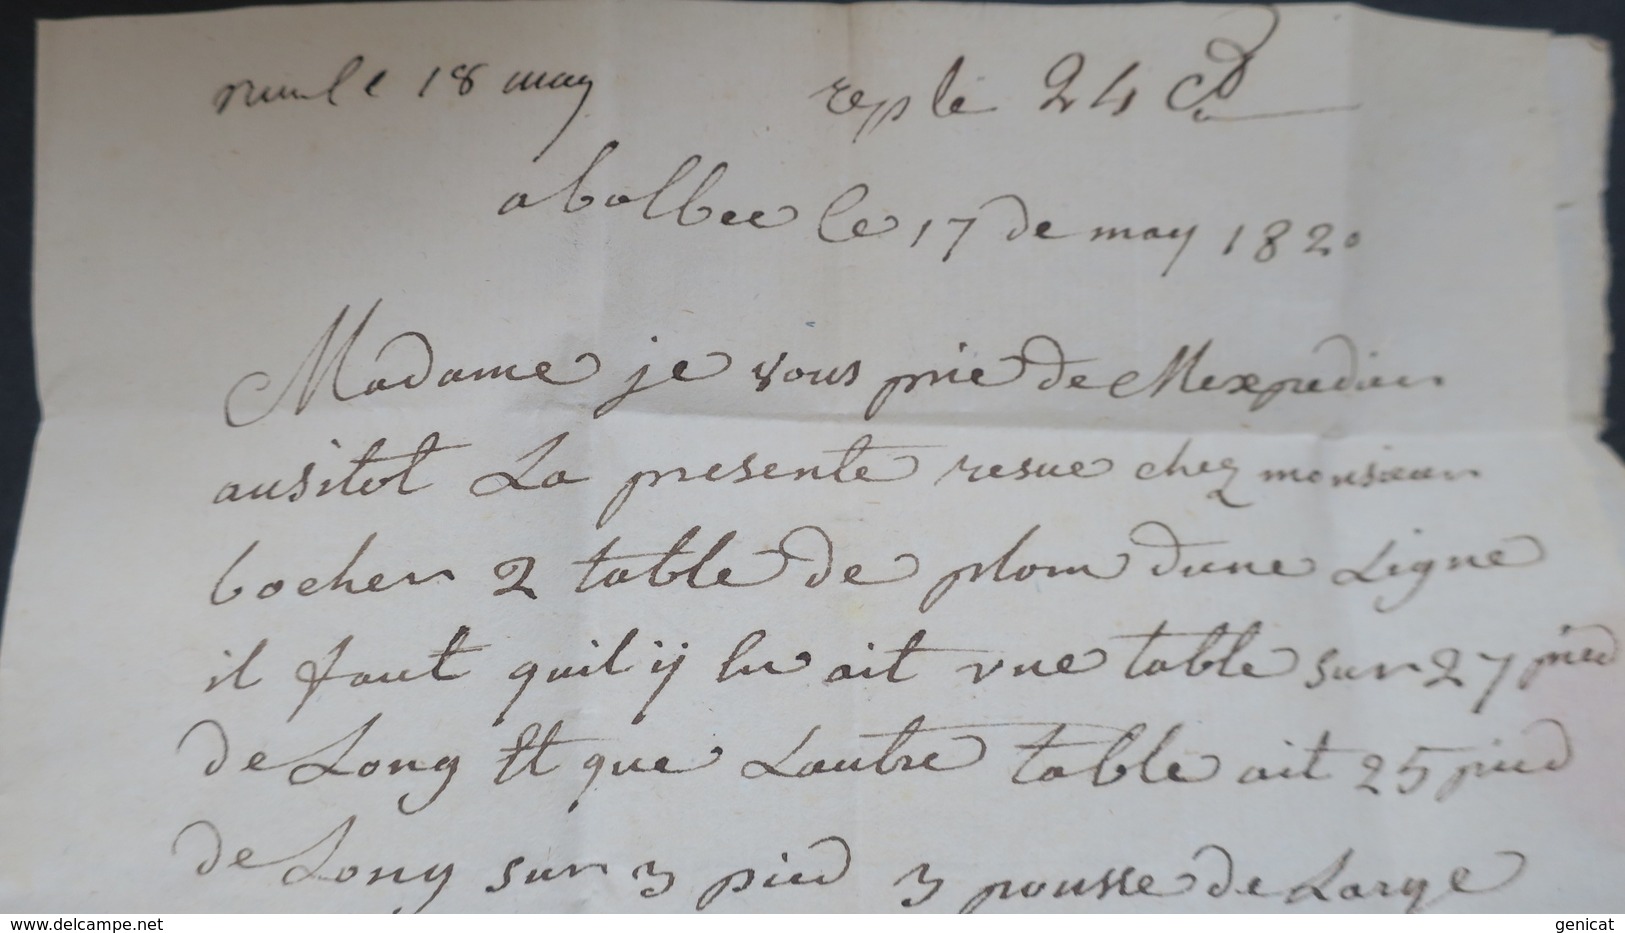 le 18 may rep le 24 Cd
a bolbec le 17 de may 1820
Madame je vous prie de Mexpedier
ausitot La presente resue chez monsieur
bocher 2 table de plom dune Ligne
il faut quil ij en ait une table sur 27 pied
de Long Et que Lautre table ait 25 pied
de Long sur 3 pied 3 pousse de Large
www.delcampe.net
genicat